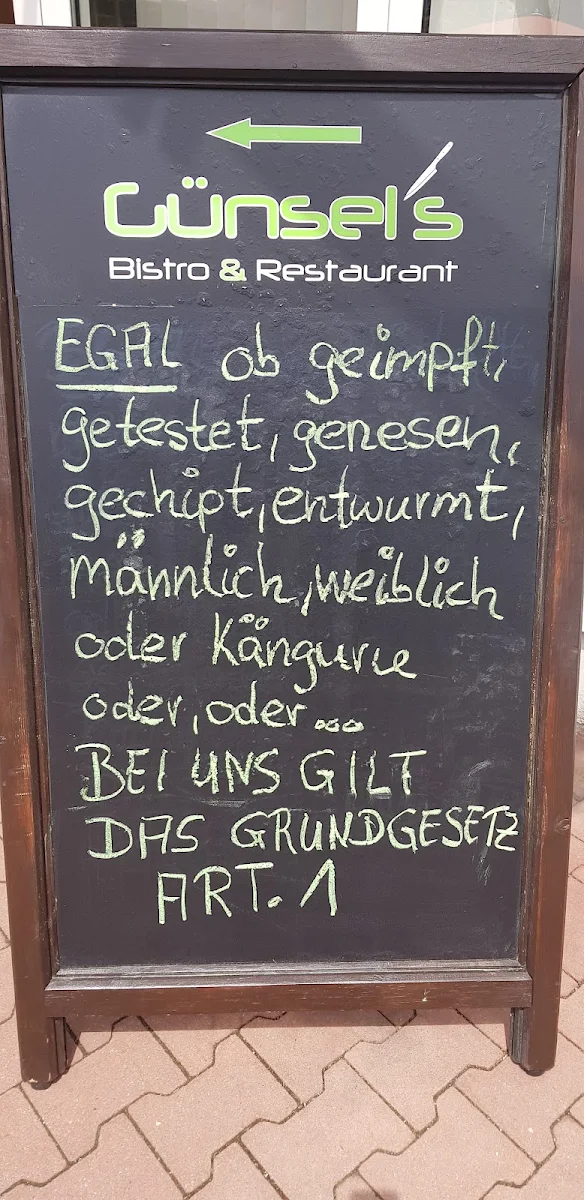 Günsel's
Bistro & Restaurant
EGAL ob geimpft,
getestet, genesen,
gechipt, entwurmt,
männlich, weiblich
oder Känguru
oder, oder...
BEI UNS GILT
DAS GRUNDGESETZ
ART. 1